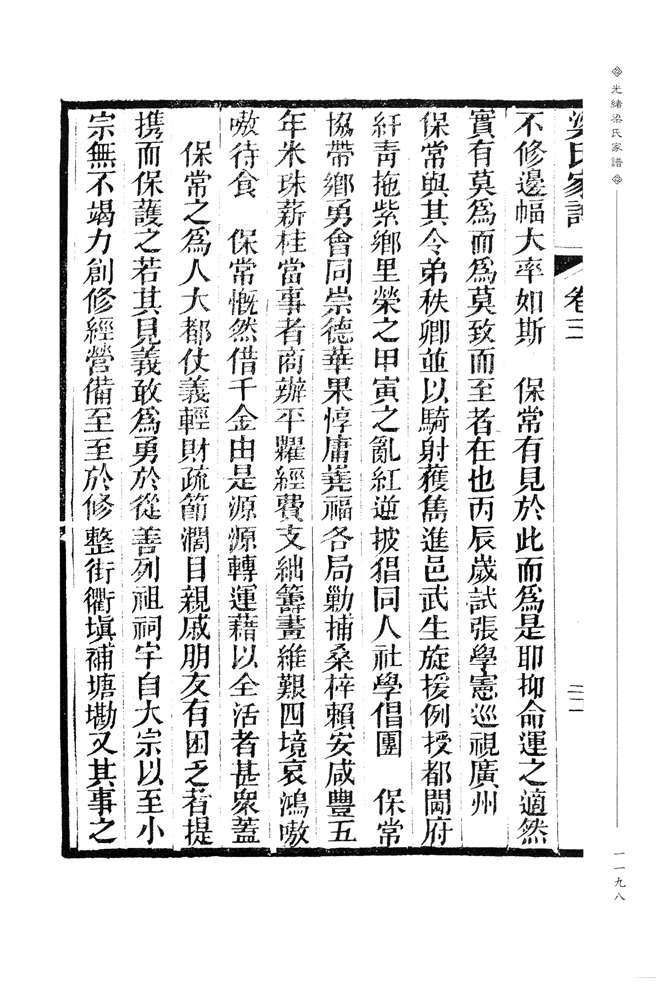 光緒梁氏家譜
一一九八
梁氏家譜 卷三 三二
不修邊幅大率如斯 保常有見於此而爲是耶抑命運之適然
實有莫爲而爲莫致而至者在也丙辰歲試張學憲巡視廣州
保常與其令弟秩卿並以騎射獲雋進邑武生旋援例授都閫府
紆靑拖紫鄉里榮之甲寅之亂紅逆披猖同人社學倡團 保常
協帶鄉勇會同崇德華果惇庸義福各局勦捕桑梓賴安咸豐五
年米珠薪桂當事者商辦平糶經費支絀籌畫維艱四境哀鴻嗷
嗷待食 保常慨然借千金由是源源轉運藉以全活者甚衆蓋
保常之爲人大都仗義輕財疏節濶目親戚朋友有困乏者提
携而保護之若其見義敢爲勇於從善列祖祠宇自大宗以至小
宗無不竭力創修經營備至至於修整街衢塡補塘墈又其事之